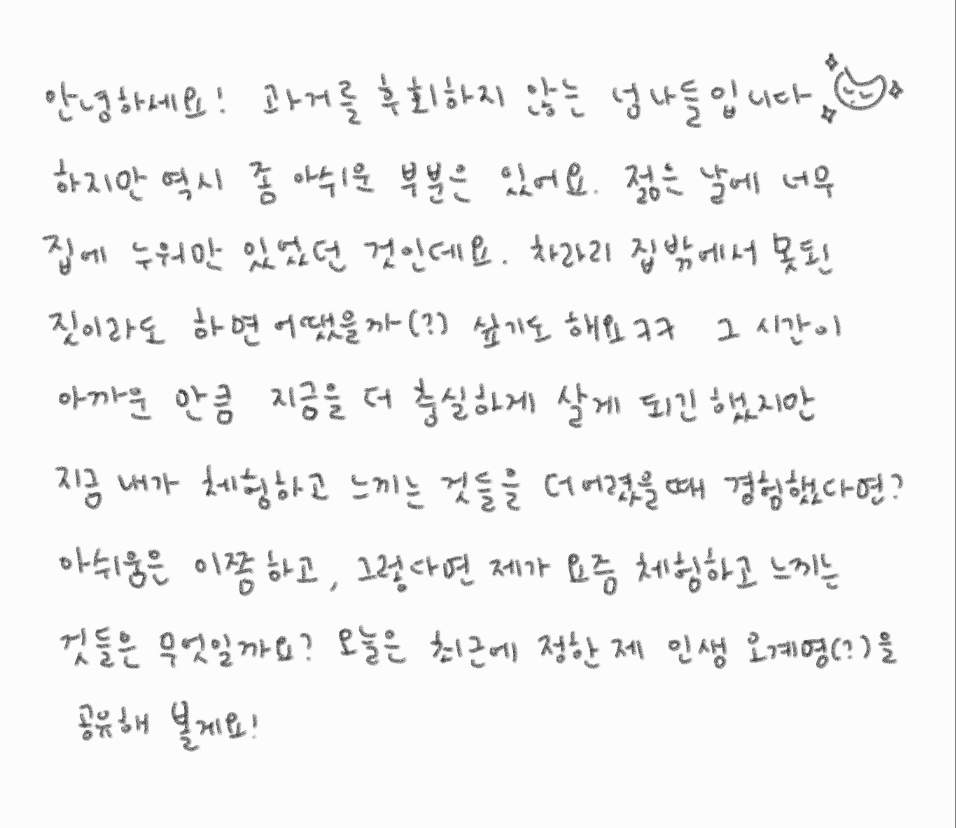 안녕하세요! 과거를 후회하지 않는 넘나들입니다
하지만 역시 좀 아쉬운 부분은 있어요. 젊은 날에 너무
집에 누워만 있었던 것인데요. 차라리 집밖에서 못된
짓이라도 하면 어땠을까(?) 싶기도 해요ㅋㅋ 그 시간이
아까운 만큼 지금을 더 충실하게 살게 되긴 했지만
지금 내가 체험하고 느끼는 것들을 더 어렸을때 경험했다면?
아쉬움은 이쯤하고, 그렇다면 제가 요즘 체험하고 느끼는
것들은 무엇일까요? 오늘은 최근에 정한 제 인생 오계명(?)을
공유해 볼게요!